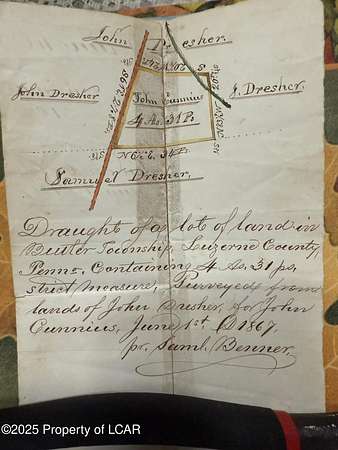 John Dresher.
John Dresher
J. Dresher.
John Cunnius
4 As. 31 Ps.
Samuel Dresher.
Draught of a lot of land in
Butler Township, Luzerne County,
Penna. Containing 4 As. 31 ps.
strict measure, Surveyed from
lands of John Dresher, for John
Cunnius, June 1st. AD 1867.
pr. Saml. Benner.
©2025 Property of LCAR